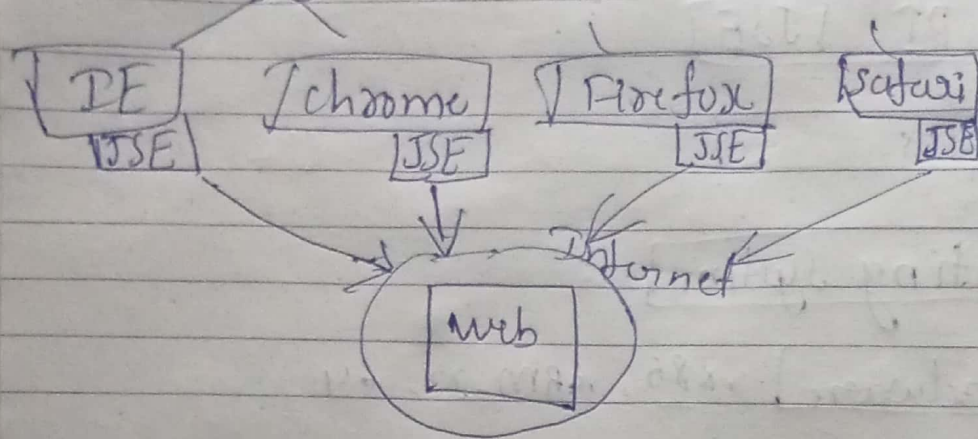 IE Chrome Firefox Safari
JSE JSE JSE JSE
Internet
Web